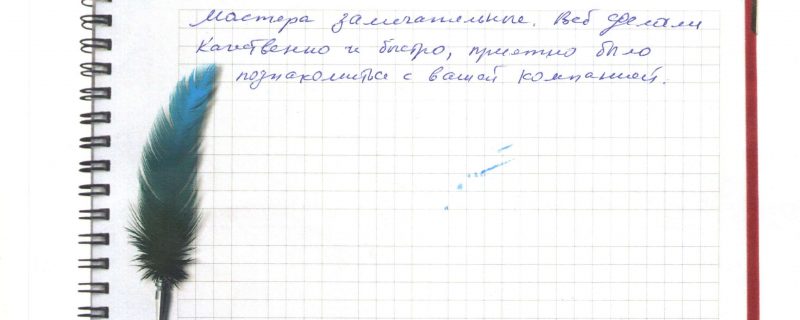 Мастера замечательные. Всё сделали
качественно и быстро, приятно было
познакомиться с вашей компанией.